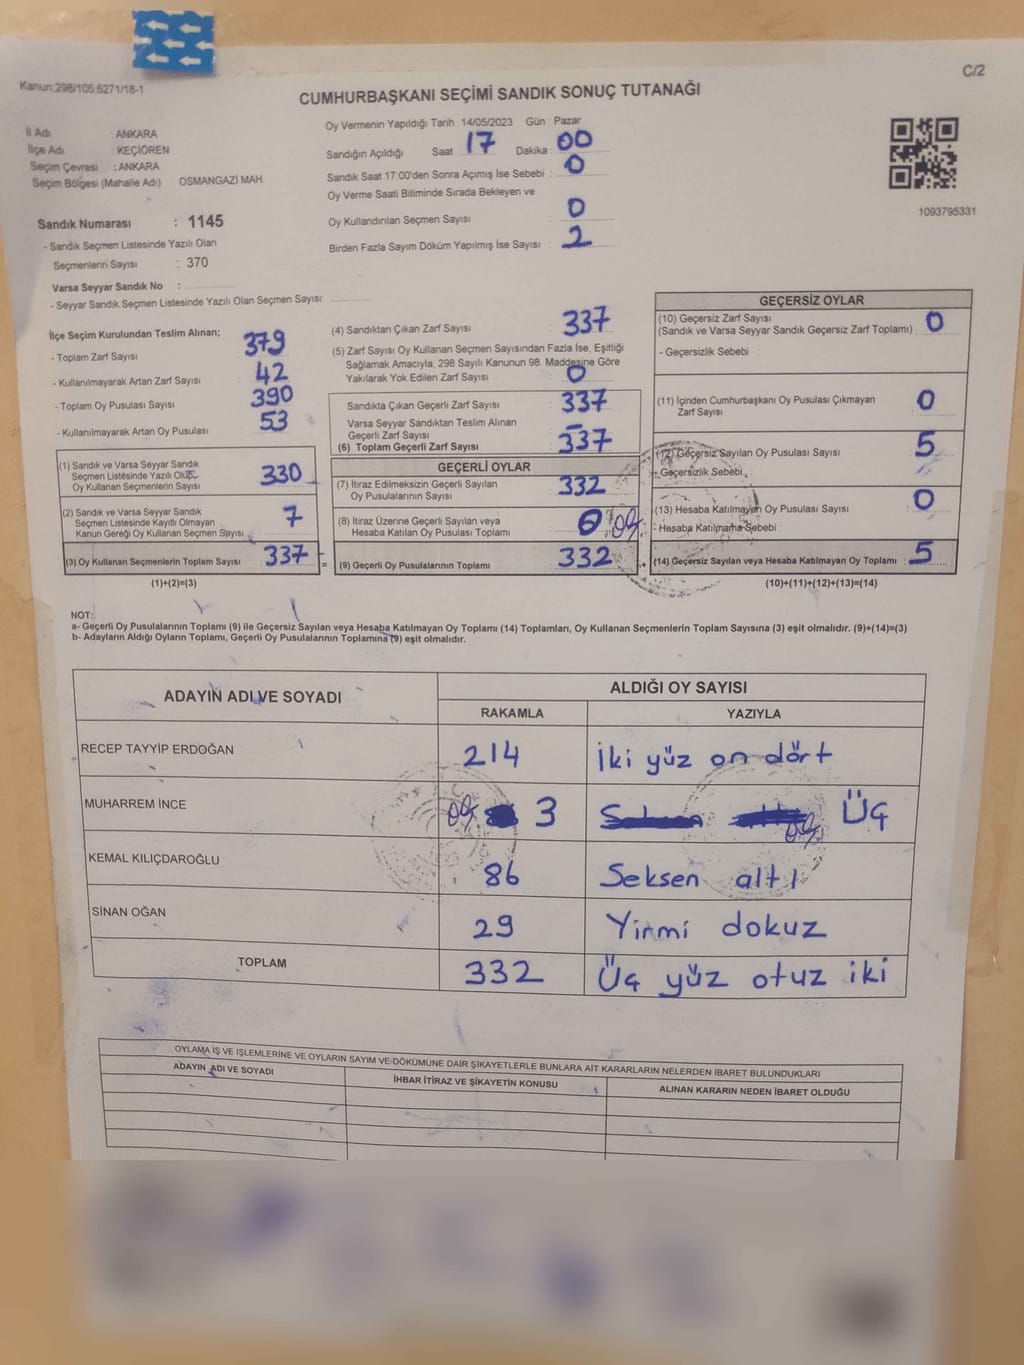 C/2
Kanun;298/105;6271/18-1
CUMHURBAŞKANI SEÇİMİ SANDIK SONUÇ TUTANAĞI
İl Adı : ANKARA
İlçe Adı : KEÇİÖREN
Seçim Çevresi : ANKARA
Seçim Bölgesi (Mahalle Adı) : OSMANGAZİ MAH.
Sandık Numarası : 1145
- Sandık Seçmen Listesinde Yazılı Olan
Seçmenlerin Sayısı : 370
Varsa Seyyar Sandık No :
- Seyyar Sandık Seçmen Listesinde Yazılı Olan Seçmen Sayısı:
Oy Vermenin Yapıldığı Tarih :14/05/2023 Gün : Pazar
Sandığın Açıldığı Saat : 17 Dakika : 00
Sandık Saat 17:00'den Sonra Açımış İse Sebebi : 0
Oy Verme Saati Bitiminde Sırada Bekleyen ve
Oy Kullandırılan Seçmen Sayısı : 0
Birden Fazla Sayım Döküm Yapılmış İse Sayısı : 2
1093795331
İlçe Seçim Kurulundan Teslim Alınan;
- Toplam Zarf Sayısı : 379
- Kullanılmayarak Artan Zarf Sayısı : 42
- Toplam Oy Pusulası Sayısı : 390
- Kullanılmayarak Artan Oy Pusulası : 53
(1) Sandık ve Varsa Seyyar Sandık
Seçmen Listesinde Yazılı Olup
Oy Kullanan Seçmenlerin Sayısı : 330
(2) Sandık ve Varsa Seyyar Sandık
Seçmen Listesinde Kayıtlı Olmayan
Kanun Gereği Oy Kullanan Seçmen Sayısı : 7
(3) Oy Kullanan Seçmenlerin Toplam Sayısı : 337 =
(1)+(2)=(3)
(4) Sandıktan Çıkan Zarf Sayısı : 337
(5) Zarf Sayısı Oy Kullanan Seçmen Sayısından Fazla İse, Eşitliği
Sağlamak Amacıyla, 298 Sayılı Kanunun 98. Maddesine Göre
Yakılarak Yok Edilen Zarf Sayısı : 0
Sandıkta Çıkan Geçerli Zarf Sayısı : 337
Varsa Seyyar Sandıktan Teslim Alınan
Geçerli Zarf Sayısı : -
(6) Toplam Geçerli Zarf Sayısı : 337
GEÇERLİ OYLAR
(7) İtiraz Edilmeksizin Geçerli Sayılan
Oy Pusulalarının Sayısı : 332
(8) İtiraz Üzerine Geçerli Sayılan veya
Hesaba Katılan Oy Pusulası Toplamı : 0
(9) Geçerli Oy Pusulalarının Toplamı : 332 +
GEÇERSİZ OYLAR
(10) Geçersiz Zarf Sayısı
(Sandık ve Varsa Seyyar Sandık Geçersiz Zarf Toplamı) : 0
- Geçersizlik Sebebi :
(11) İçinden Cumhurbaşkanı Oy Pusulası Çıkmayan
Zarf Sayısı : 0
(12) Geçersiz Sayılan Oy Pusulası Sayısı : 5
- Geçersizlik Sebebi :
(13) Hesaba Katılmayan Oy Pusulası Sayısı : 0
- Hesaba Katılmama Sebebi :
(14) Geçersiz Sayılan veya Hesaba Katılmayan Oy Toplamı : 5
(10)+(11)+(12)+(13)=(14)
NOT:
a- Geçerli Oy Pusulalarının Toplamı (9) ile Geçersiz Sayılan veya Hesaba Katılmayan Oy Toplamı (14) Toplamları, Oy Kullanan Seçmenlerin Toplam Sayısına (3) eşit olmalıdır. (9)+(14)=(3)
b- Adayların Aldığı Oyların Toplamı, Geçerli Oy Pusulalarının Toplamına (9) eşit olmalıdır.
ADAYIN ADI VE SOYADI ALDIĞI OY SAYISI
RAKAMLA YAZIYLA
RECEP TAYYİP ERDOĞAN 214 İki yüz on dört
MUHARREM İNCE 3 Üç
KEMAL KILIÇDAROĞLU 86 Seksen altı
SİNAN OĞAN 29 Yirmi dokuz
TOPLAM 332 Üç yüz otuz iki
OYLAMA İŞ VE İŞLEMLERİNE VE OYLARIN SAYIM VE DÖKÜMÜNE DAİR ŞİKAYETLERLE BUNLARA AİT KARARLARIN NELERDEN İBARET BULUNDUKLARI
ADAYIN ADI VE SOYADI İHBAR İTİRAZ VE ŞİKAYETİN KONUSU ALINAN KARARIN NEDEN İBARET OLDUĞU